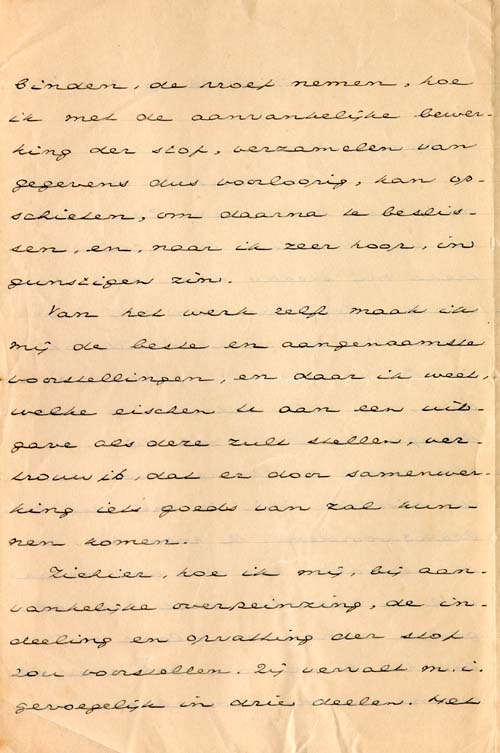 binden, de proef nemen, hoe
ik met de aanvankelijke bewer-
king der stof, verzamelen van
gegevens dus voorloopig, kan op-
schieten, om daarna te beslis-
sen, en, naar ik zeer hoop, in
gunstigen zin.
Van het werk zelf maak ik
mij de beste en aangenaamste
voorstellingen, en daar ik weet,
welke eischen u aan een uit-
gave als deze zult stellen, ver-
trouw ik, dat er door samenwer-
king iets goeds van zal kun-
nen komen.
Ziehier, hoe ik mij, bij aan-
vankelijke overpeinzing, de in-
deeling en opvatting der stof
zou voorstellen. Zij vervalt m.i.
gevoegelijk in drie deelen. Het